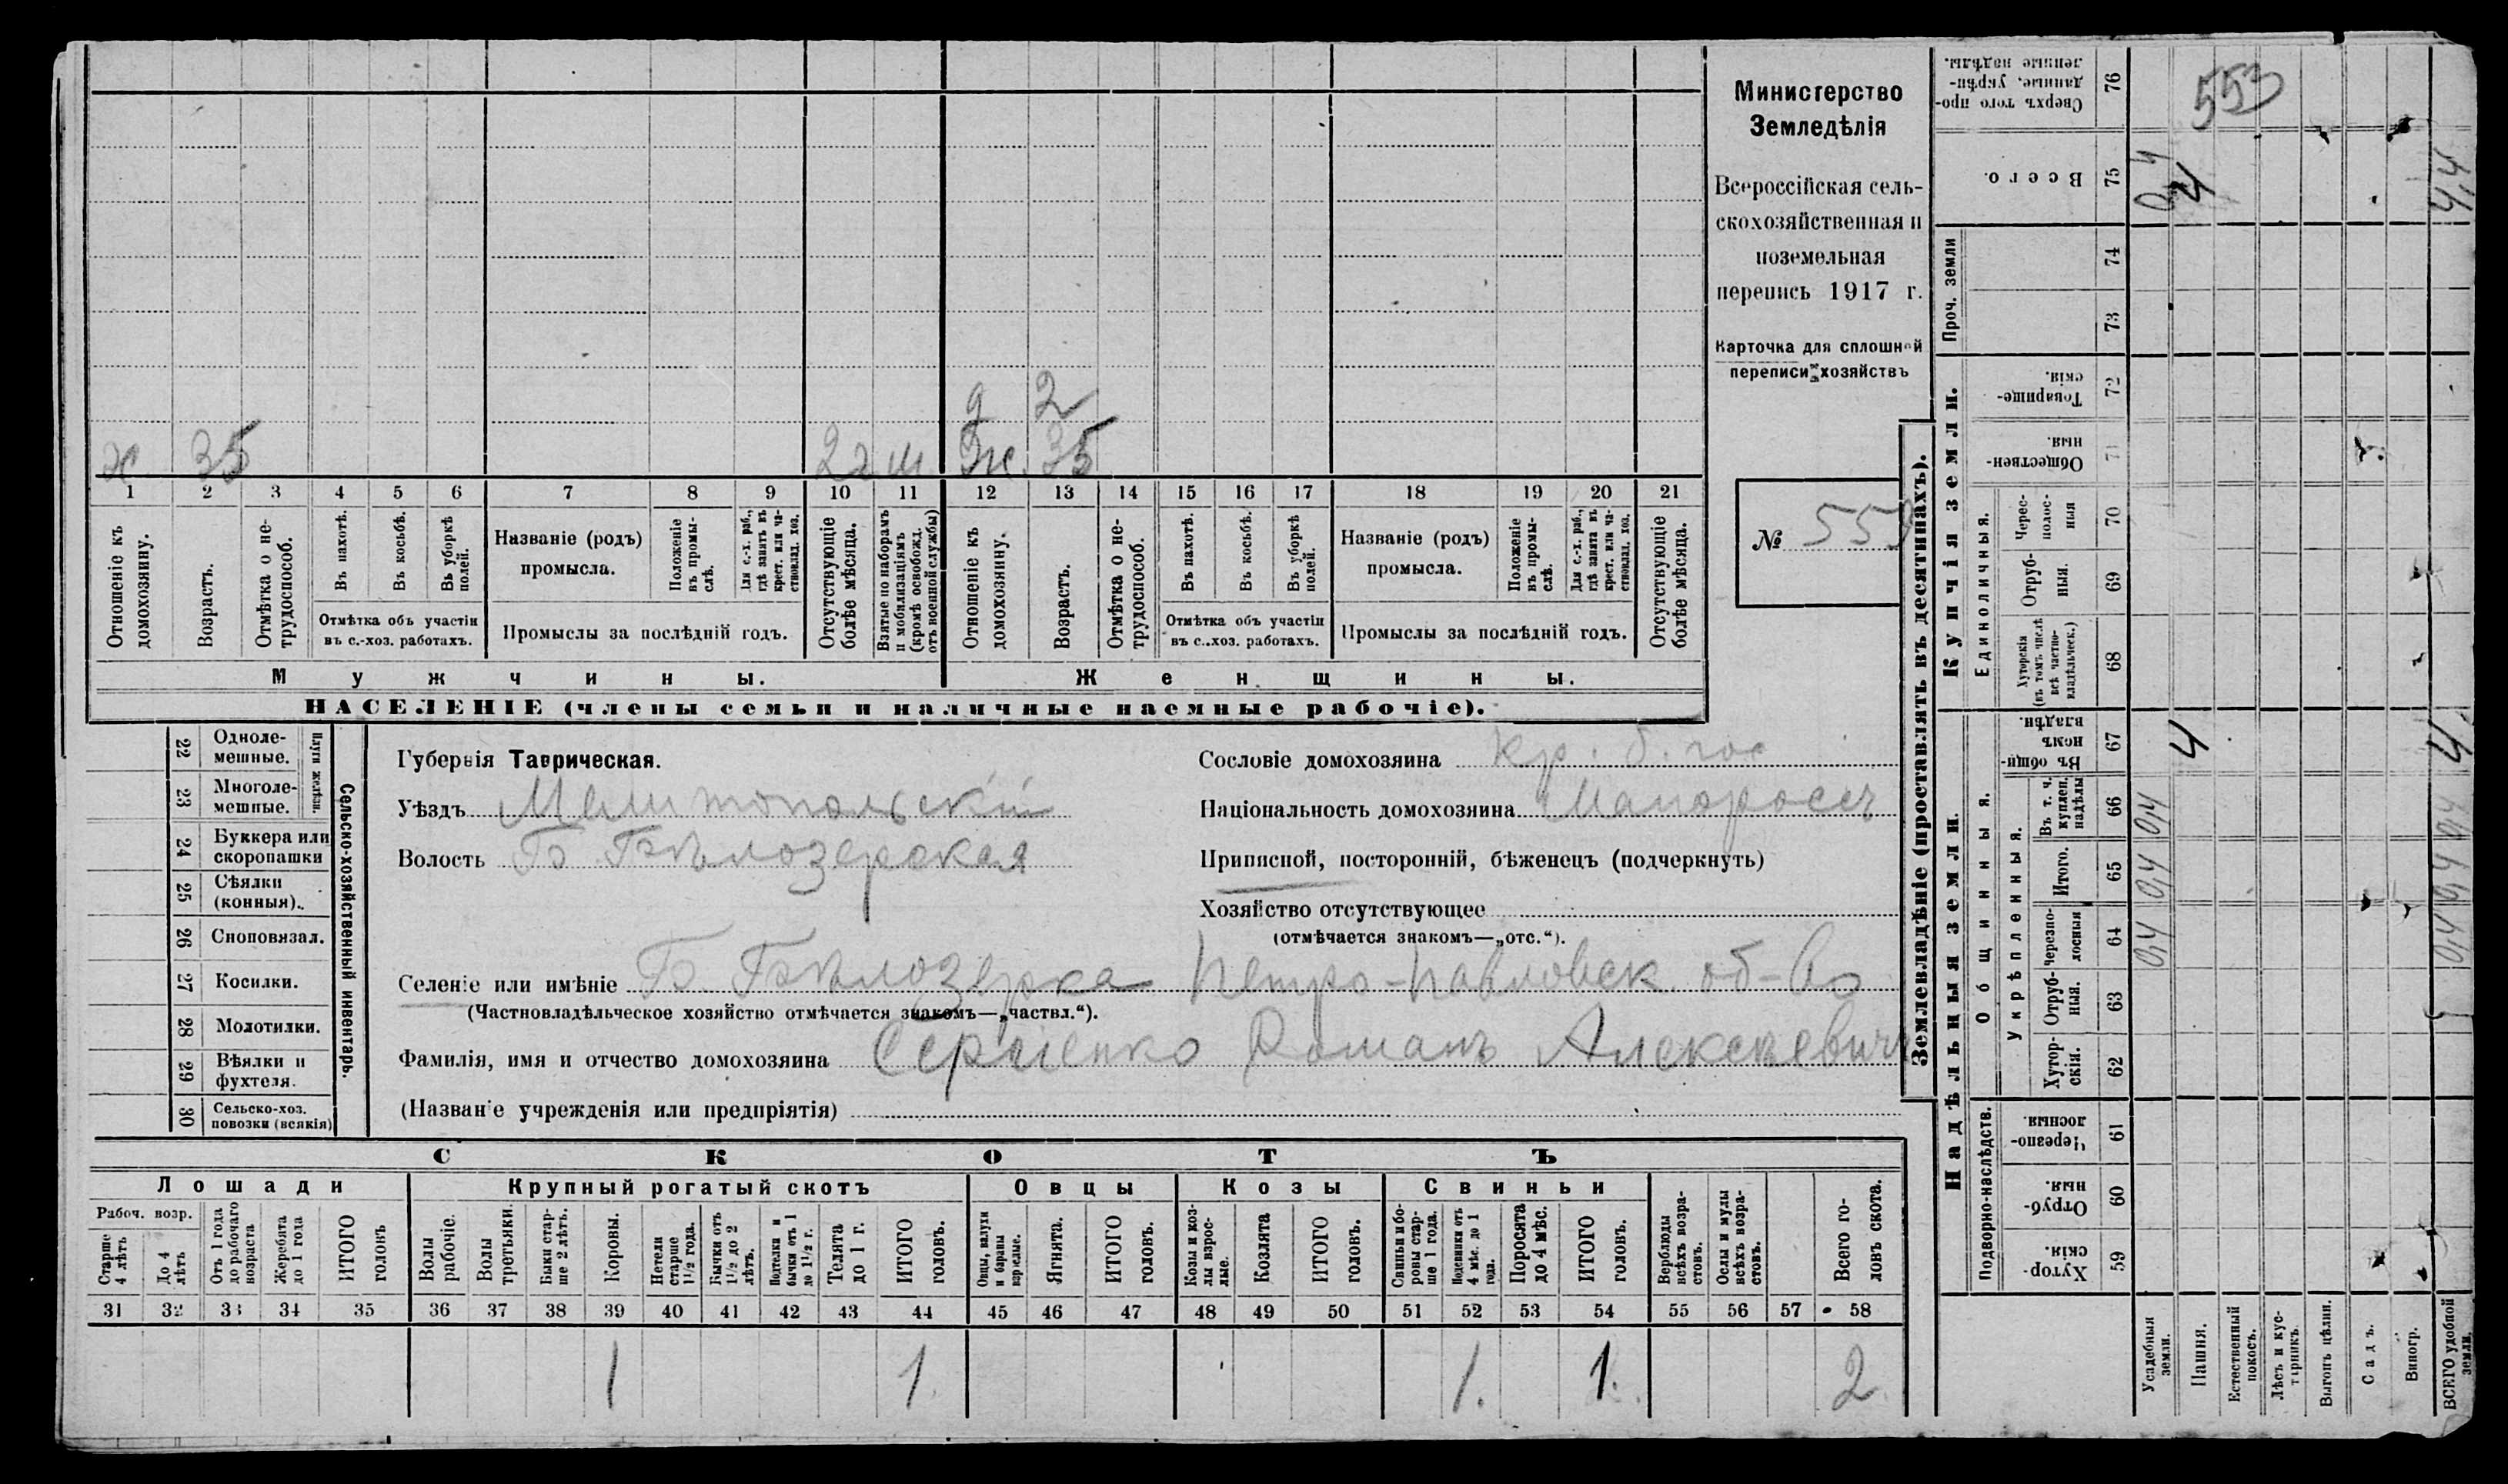 Министерство
Земледѣлія
Всероссійская сель-
скохозяйственная и
поземельная
перепись 1917 г.
Карточка для сплошной
переписи хозяйствъ
№ 553
х 35 22 м.
д 2
Ж. 35
1 2 3 4 5 6 7 8 9 10 11 12 13 14 15 16 17 18 19 20 21
Отношеніе къ домохозяину.
Возрастъ.
Отмѣтка о не-трудоспособ.
Въ пахотѣ.
Въ косьбѣ.
Въ уборкѣ полей.
Отмѣтка объ участіи въ с.-хоз. работахъ.
Названіе (родъ) промысла.
Положеніе въ промы-слѣ.
Для с.-х. раб., гдѣ занятъ въ крест. или ча-стновлад. хоз.
Промыслы за послѣдній годъ.
Отсутствующіе болѣе мѣсяца.
Взятые по наборамъ и мобилизаціямъ (кромѣ освобожд. отъ военной службы)
Отношеніе къ домохозяину.
Возрастъ.
Отмѣтка о не-трудоспособ.
Въ пахотѣ.
Въ косьбѣ.
Въ уборкѣ полей.
Отмѣтка объ участіи въ с..хоз. работахъ.
Названіе (родъ) промысла.
Положеніе въ промы-слѣ.
Для с.-х. раб., гдѣ занята въ крест. или ча-стновлад. хоз.
Промыслы за послѣдній годъ.
Отсутствующіе болѣе мѣсяца.
Мужчины. Женщины.
НАСЕЛЕНІЕ (члены семьи и наличные наемные рабочіе).
Сельско-хозяйственный инвентарь.
Плуги желѣзн.
22 Одноле-мешные.
23 Многоле-мешные.
24 Буккера или скоропашки
25 Сѣялки (конныя)..
26 Сноповязал.
27 Косилки.
28 Молотилки.
29 Вѣялки и фухтеля.
30 Сельско-хоз. повозки (всякія)
Губернія Таврическая.
Уѣздъ Мелитопольскій
Волость Б Бѣлозерская
Сословіе домохозяина кр. б. гос
Національность домохозяина Малороссъ
Приписной, посторонній, бѣженецъ (подчеркнуть)
Хозяйство отсутствующее
(отмѣчается знакомъ—„отс.“).
Селеніе или имѣніе Б. Бѣлозерка Петро-Павловск. об-во
(Частновладѣльческое хозяйство отмѣчается знакомъ—„частвл.“).
Фамилія, имя и отчество домохозяина Сергіенко Романъ Алексѣевичъ
(Названіе учрежденія или предпріятія)
СКОТЪ
Лошади Крупный рогатый скотъ Овцы Козы Свиньи
Рабоч. возр.
Старше 4 лѣтъ
До 4 лѣтъ
Отъ 1 года до рабочаго возраста
Жеребята до 1 года
ИТОГО головъ
Волы рабочіе.
Волы третьяки.
Быки стар-ше 2 лѣтъ.
Коровы.
Нетели старше 1½ года.
Бычки отъ 1½ до 2 лѣтъ.
Подтелки и бычки отъ 1 до 1½ г.
Телята до 1 г.
ИТОГО головъ.
Овцы, валухи и бараны взрослые.
Ягнята.
ИТОГО головъ.
Козы и коз-лы взрос-лые.
Козлята
ИТОГО головъ.
Свиньи и бо-ровы стар-ше 1 года.
Подсвинки отъ 4 мѣс. до 1 года.
Поросята до 4 мѣс.
ИТОГО головъ.
Верблюды всѣхъ возра-стовъ.
Ослы и мулы всѣхъ возра-стовъ.
Всего го-ловъ скота.
31 32 33 34 35 36 37 38 39 40 41 42 43 44 45 46 47 48 49 50 51 52 53 54 55 56 57 58
1 1. 1. 1. 2
Землевладѣніе (проставлять въ десятинахъ).
Надѣльныя земли.
Купчія земли.
Проч. земли
Подворно-наслѣдств.
Общинныя.
Укрѣпленныя.
Единоличныя.
Сверхъ того про-данные, укрѣп-ленные надѣлы. 76
Всего. 75
74
73
Товарище-скія. 72
Обществен-ныя. 71
Черес-полос-ныя 70
Отруб-ныя. 69
Хуторскія (въ томъ числѣ всѣ частно-владѣльческ.) 68
Въ общи-номъ владѣн. 67
Въ т. ч. куплен. надѣлы 66
Итого. 65
Черезпо-лосныя 64
Отруб-ныя. 63
Хутор-скія. 62
Черезпо-лосныя 61
Отруб-ныя. 60
Хутор-скія. 59
Усадебныя земли.
Пашня.
Естественный покосъ.
Лѣсъ и кус-тарникъ.
Выгонъ цѣлин.
Садъ.
Виногр.
ВСЕГО удобной земли.
553
0,4 0,4 0,4 0,4
4 4
0,4 0,4 0,4 4 4,4